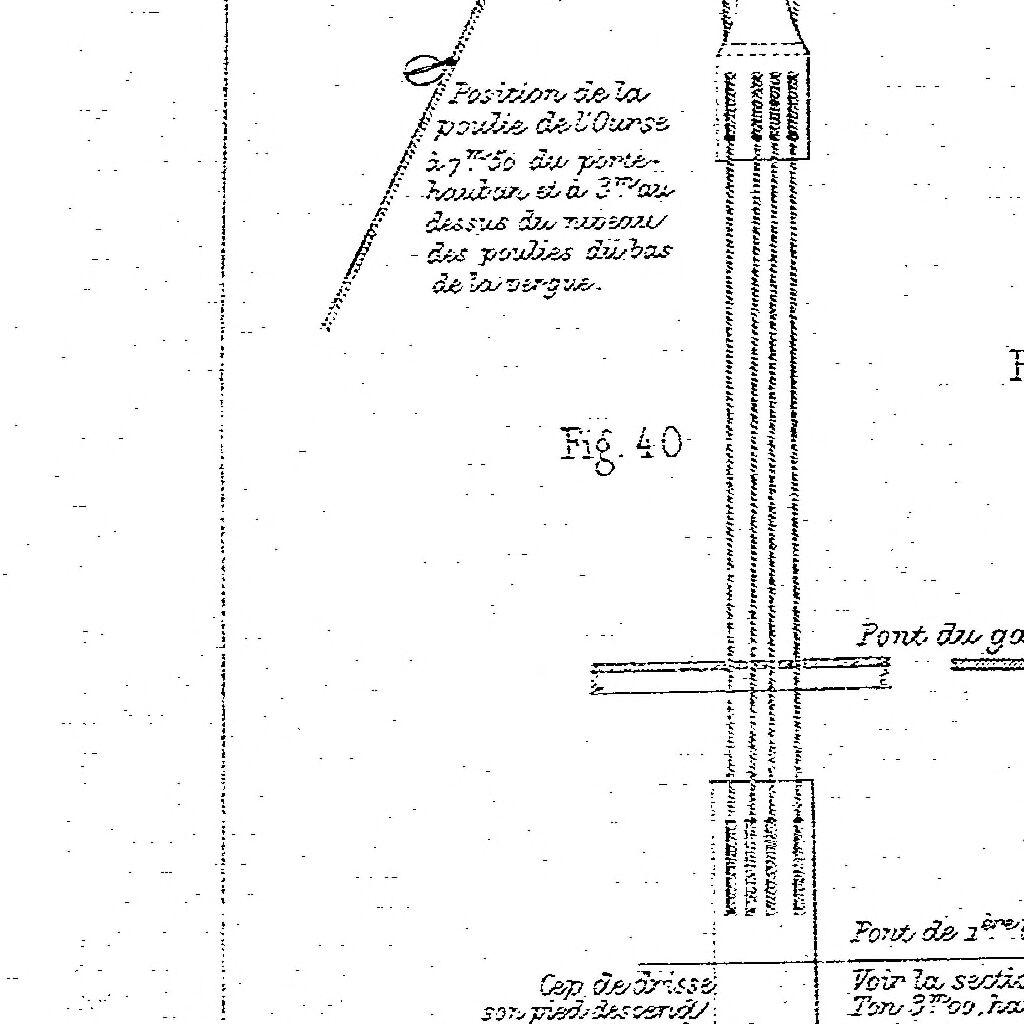 Position de la
poulie de l'Ourse
à 7m50 du porte-
hauban et à 3m au
dessus du niveau
des poulies du bas
de la vergue.
Fig. 40
Pont du ga
Pont de 1ère
Cep de drisse
son pied descend
Voir la sectio
Ton 3m00, ha